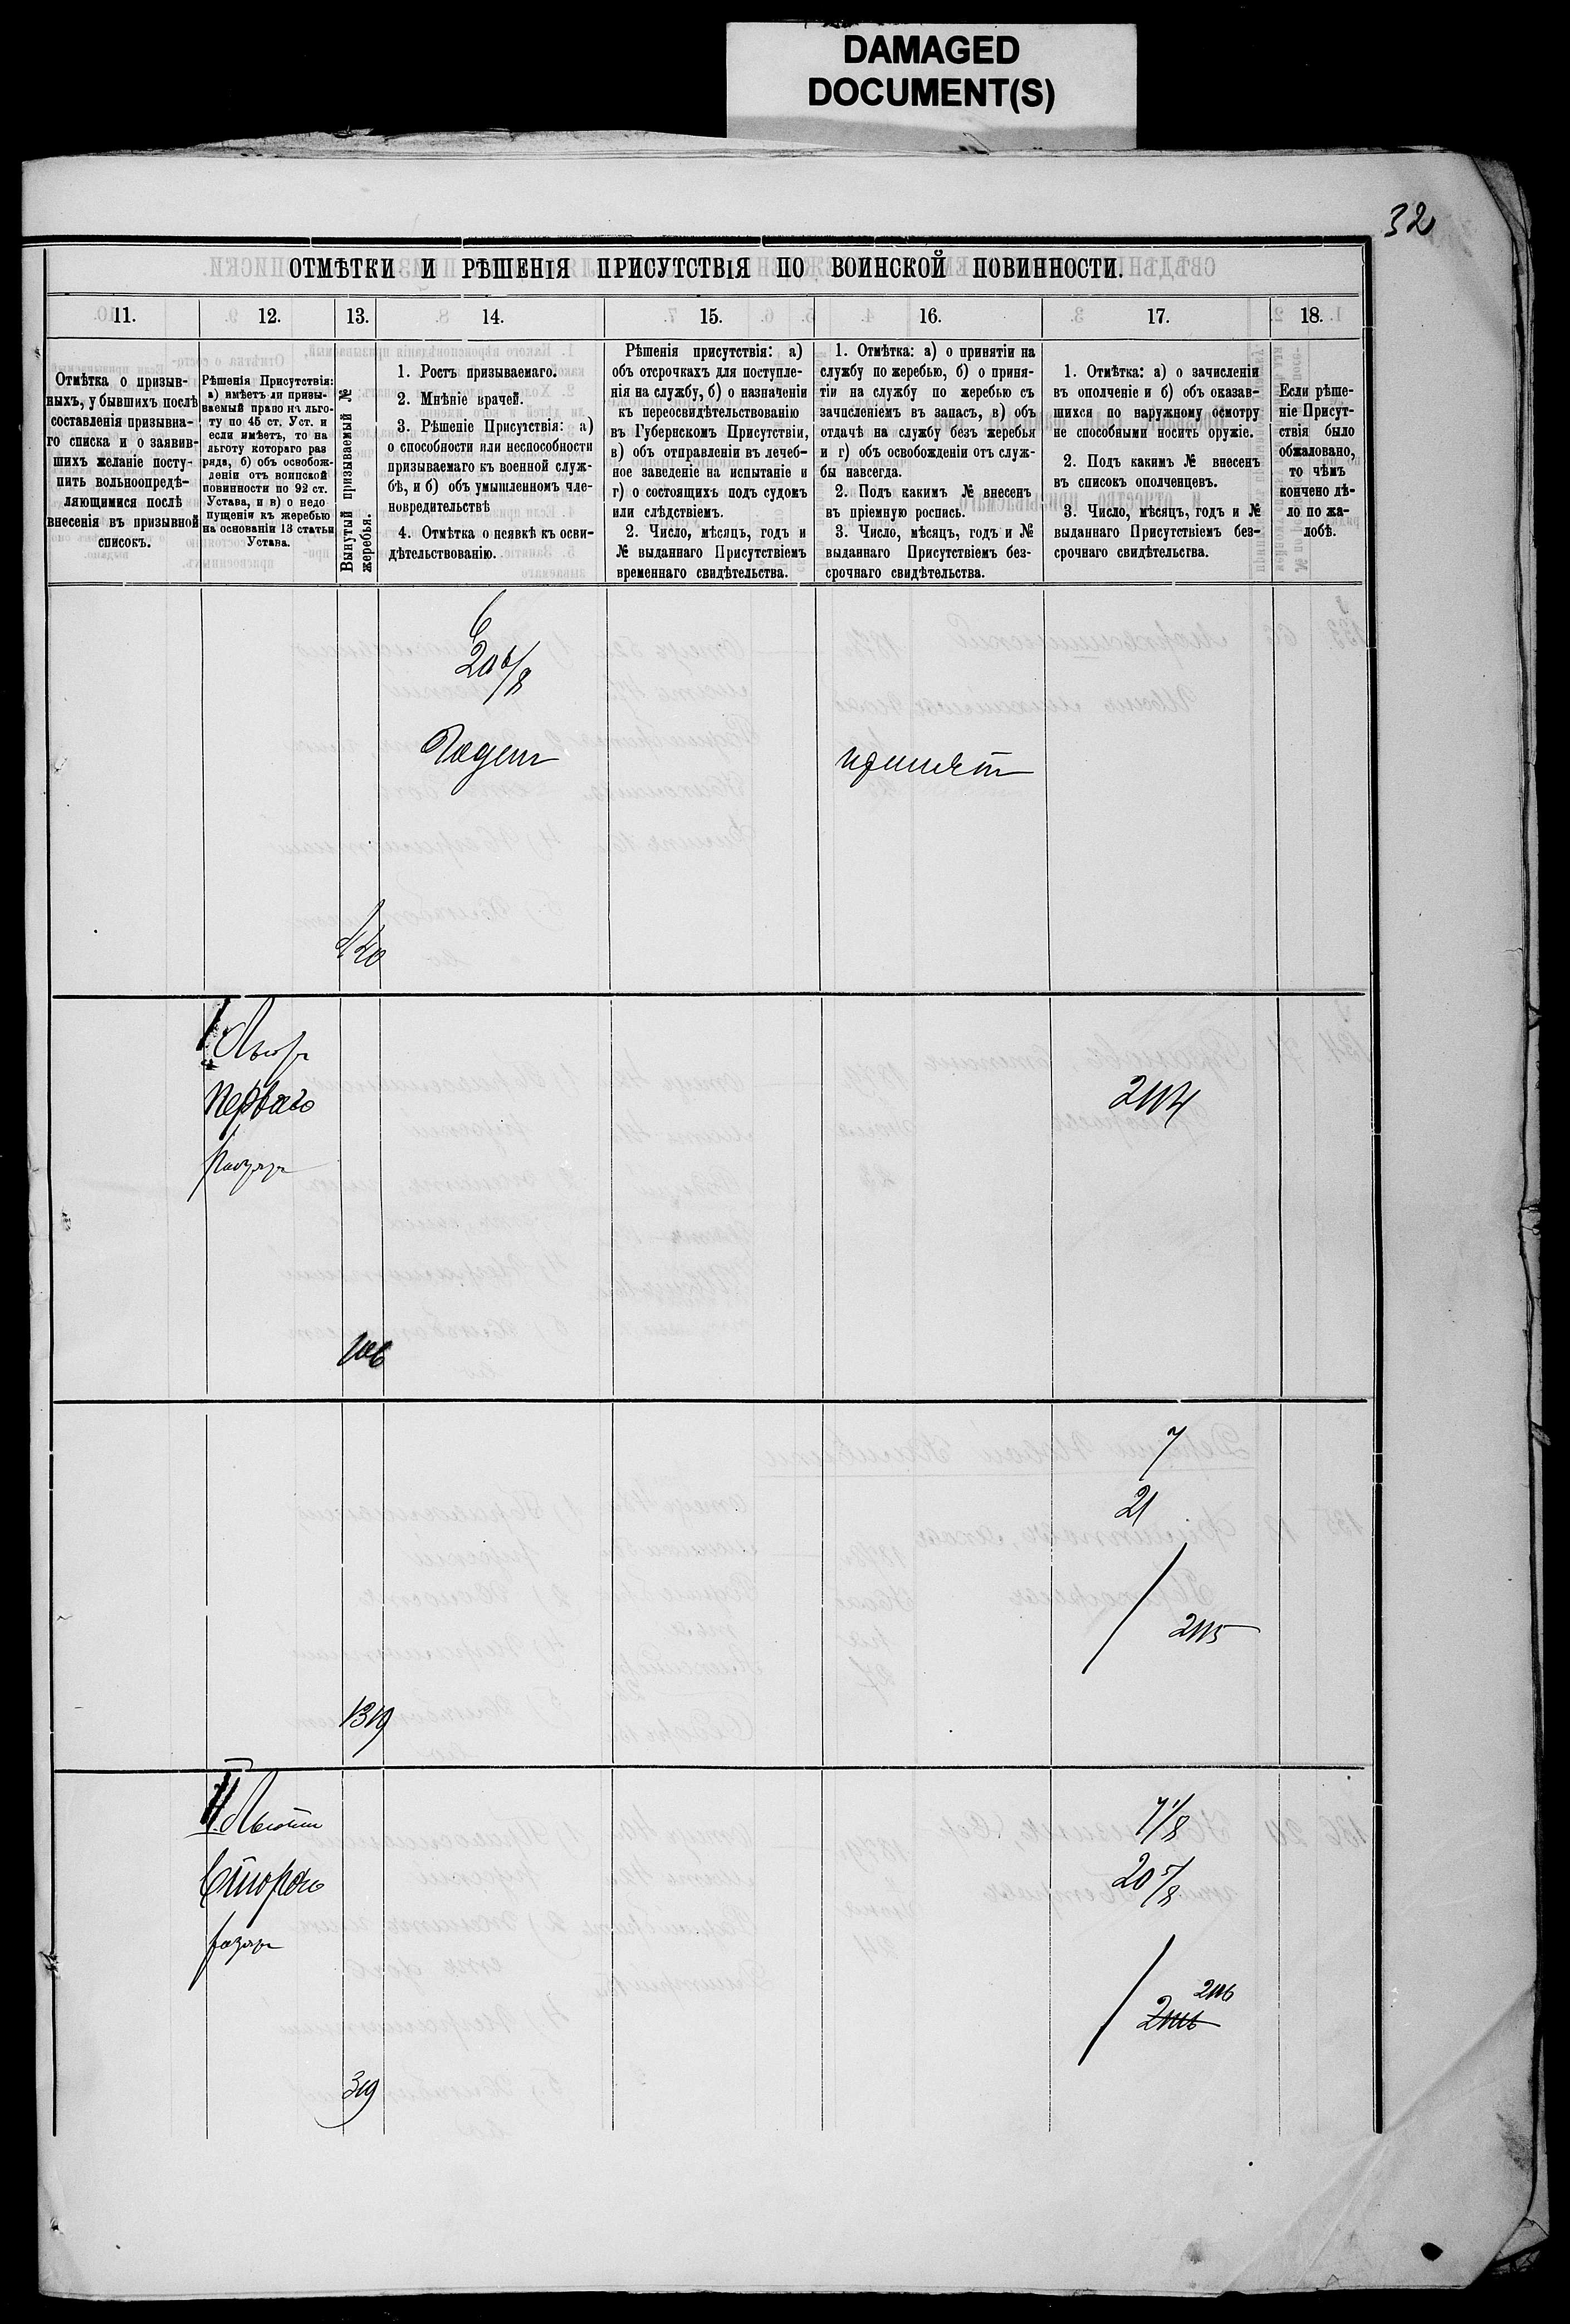 DAMAGED
DOCUMENT(S)
32
ОТМѢТКИ И РѢШЕНІЯ ПРИСУТСТВІЯ ПО ВОИНСКОЙ ПОВИННОСТИ.
11.
12.
13.
14.
15.
16.
17.
18.
Отмѣтка о призыв-
ныхъ, у бывшихъ послѣ
составленія призывна-
го списка и о заявив-
шихъ желаніе посту-
пить вольноопредѣ-
ляющимися послѣ
внесенія въ призывной
списокъ.
Рѣшенія Присутствія:
а) имѣетъ ли призы-
ваемый право на льго-
ту по 45 ст. Уст. и
если имѣетъ, то на
льготу котораго раз
ряда, б) объ освобож-
деніи отъ воинской
повинности по 92 ст.
Устава, и в) о недо
пущеніи къ жеребью
на основаніи 13 статьи
Устава.
Вынутый призываемый №
жеребья.
1. Ростъ призываемаго.
2. Мнѣніе врачей.
3. Рѣшеніе Присутствія: а)
о способности или неспособности
призываемаго къ военной служ-
бѣ, и б) объ умышленномъ чле-
новредительствѣ
4. Отмѣтка о неявкѣ къ осви-
дѣтельствованію.
Рѣшенія присутствія: а)
объ отсрочкахъ для поступле-
нія на службу, б) о назначеніи
къ переосвидѣтельствованію
въ Губернскомъ Присутствіи,
в) объ отправленіи въ лечеб-
ное заведеніе на испытаніе и
г) о состоящихъ подъ судомъ
или слѣдствіемъ.
2. Число, мѣсяцъ, годъ и
№ выданнаго Присутствіемъ
временнаго свидѣтельства.
1. Отмѣтка: а) о принятіи на
службу по жеребью, б) о приня-
тіи на службу по жеребью съ
зачисленіемъ въ запасъ, в) объ
отдачѣ на службу безъ жеребья
и г) объ освобожденіи отъ служ-
бы навсегда.
2. Подъ какимъ № внесенъ
въ пріемную роспись.
3. Число, мѣсяцъ, годъ и №
выданнаго Присутствіемъ без-
срочнаго свидѣтельства.
1. Отмѣтка: а) о зачисленіи
въ ополченіе и б) объ оказав-
шихся по наружному осмотру
не способными носить оружіе.
2. Подъ какимъ № внесенъ
въ списокъ ополченцевъ.
3. Число, мѣсяцъ, годъ и №
выданнаго Присутствіемъ без-
срочнаго свидѣтельства.
Если рѣше-
ніе Присут-
ствія было
обжаловано,
то чѣмъ
кончено дѣ-
ло по жа-
лобѣ.
6
20 6/8
Годен
принят
I.
перваго
разряд
106
7
21
1319
II.
второго
разряд
7 1/8
20 5/8
319